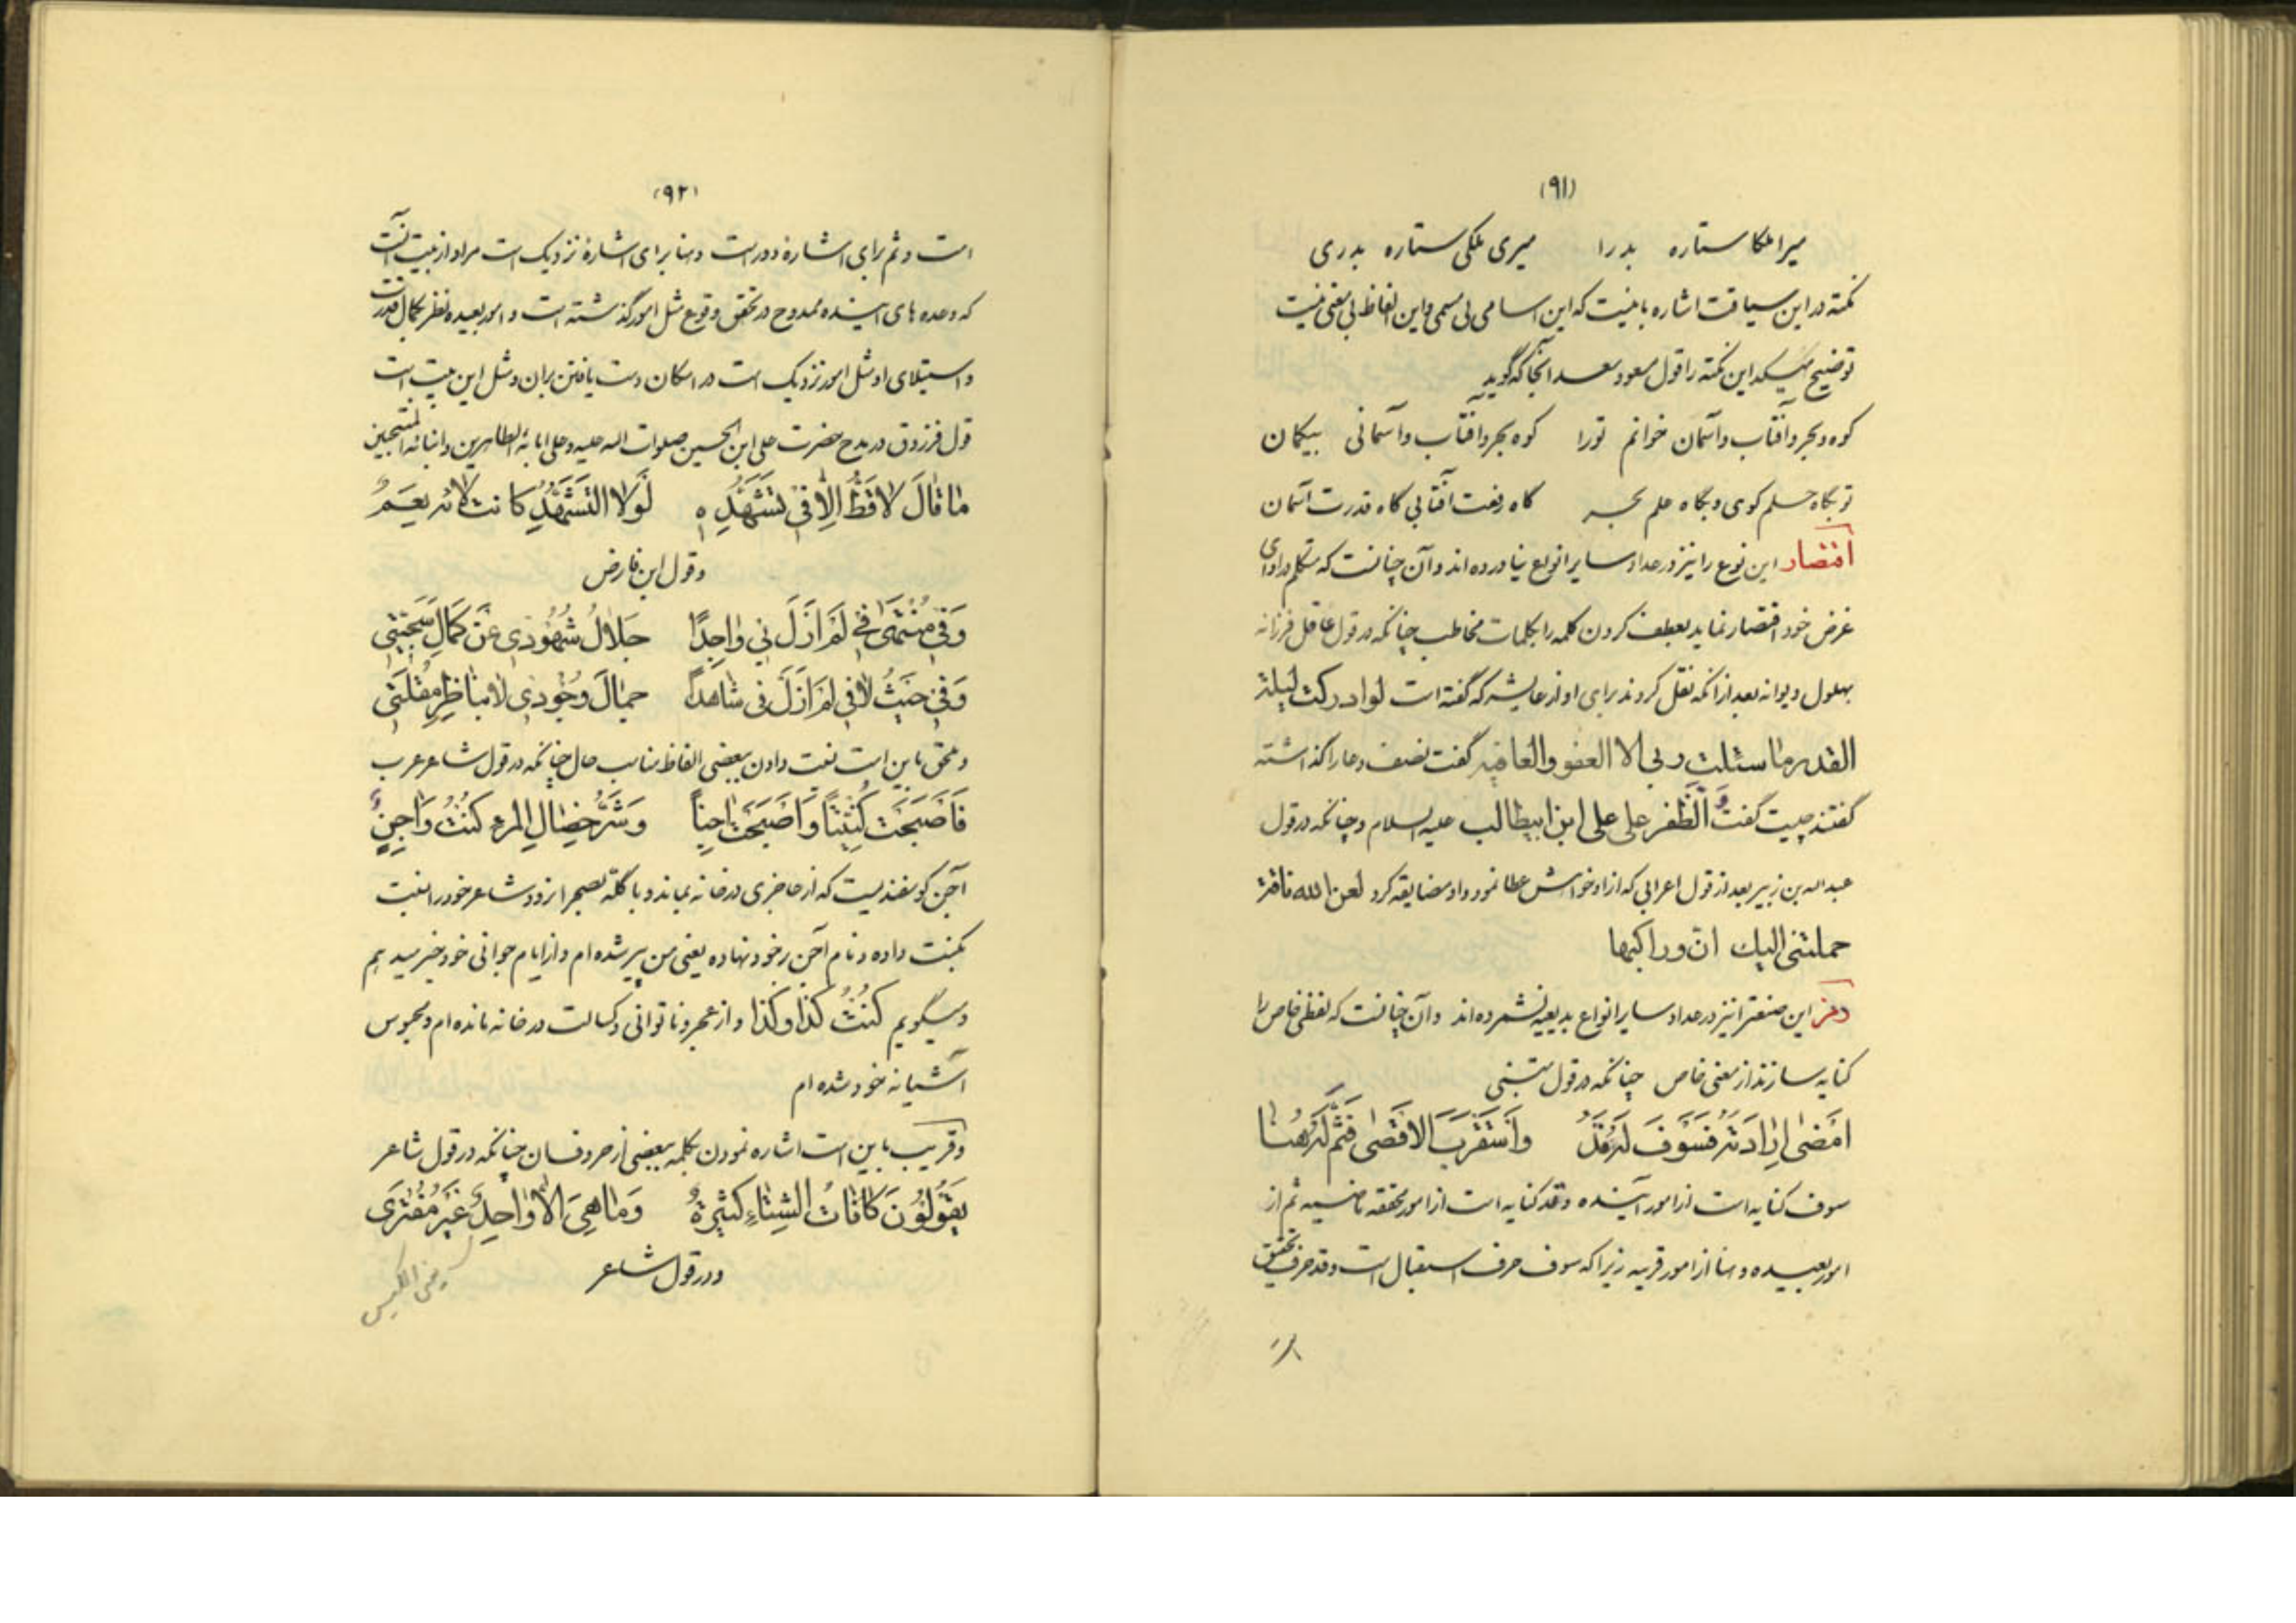 (۹۱)
میرا ملکا ستاره بدرا میری ملکی ستاره بدری
نکته در این سیاقت اشاره باینست که این اسامی بی مسمی و این الفاظ بی معنی نیست
توضیح میکند این نکته را قول مسعود سعد آنجا که گوید
کوه و بحر و آفتاب و آسمان خوانم تورا کوه و بحر و آفتاب و آسمانی بیکمان
تو بگاه حلم کوهی و بگاه علم بحر گاه رفعت آفتابی گاه قدرت آسمان
اقتصار این نوع را نیز در عداد سایر انواع نیاورده اند و آن چنانست که متکلم در ادای
غرض خود اقتصار نماید بعطف کردن کلمه را بکلمات مخاطب چنانکه در قول عاقل فرزانه
بهلول دیوانه بعد از آنکه نقل کردند برای او از عایشه که گفته است لو ادركت ليلة
القدر ما سئلت ربی الا العفو والعافیة گفت نصف دعا را گذاشته
گفتند چیست گفت وَالظَّفر علی علی ابن ابیطالب علیه السلام و چنانکه در قول
عبدالله بن زبیر بعد از قول اعرابی که از او خواهش عطا نمود و او مضایقه کرد لعن الله ناقة
حملتنی الیك انّ وراكبها
رمز این صنعترا نیز در عداد سایر انواع بدیعیه نشمرده اند و آن چنانست که لفظی خاص را
کنایه سازند از معنی خاص چنانکه در قول متنبی
اَمْضٰى اِرٰادَتَهُ فَسَوْفَ لَهُ قَدُ وَاَسْتَقْرَبَ الاَقْصٰى فَثَمَّ لَهُ هُنٰا
سوف کنایه است از امور آینده و قد کنایه است از امور محققه ماضیه ثم از
امور بعیده و هنا از امور قریبه زیرا که سوف حرف استقبال است و قد حرف تحقیق
(۹۲)
است و ثم برای اشارهٔ دور است و هنا برای اشارهٔ نزدیک است مراد از بیت آنست
که وعده های آینده ممدوح در تحقق وقوع مثل امور گذشته است و امور بعیده نظر بکمال قدرت
و استیلای او مثل امور نزدیک است در امکان دست یافتن بران و مثل این بیت است
قول فرزدق در مدح حضرت علی ابن الحسین صلوات الله علیه و علی ابائه الطاهرین و ابنائه المنتجبین
مٰا قٰالَ لاٰ قَطُّ اِلاّٰ فى تَشَهُّدِهِ لَوْلاَ التَّشَهُّدُ كانت لائه نَعَمُ
و قول ابن فارض
وَفى مُنْتَهٰى فى لَمْ اَزَلْ بى وٰاجِدًا جَلاٰلُ شُهُودى عَنْ كَمٰالِ سَجِيَّتى
وَفى حَيْثُ لاٰ فى لَمْ اَزَلْ فى شٰاهِدًا جَمٰالَ وُجُودى لاٰ بِنٰاظِرِ مُقْلَتى
و ملحق باین است نعت دادن ببعضی الفاظ مناسب حال چنانکه در قول شاعر عرب
فَاَصْبَحْتُ كُنْتِيّاً وَاَصْبَحْتُ اٰجِناً وَشَرُّ خِصٰالِ المَرْءِ كُنْتُ وَاٰجِنٌ
آجن گوسفندیست که از حاضری در خانه بماند و با گله بصحرا نرود شاعر خود را نسبت
بکنت داده و نام آجن بر خود نهاده یعنی من پیر شده ام و از ایام جوانی خود خبر میدهم
و میگویم كُنْتُ كَذٰا وَكَذٰا و از عجز و ناتوانی و کسالت در خانه مانده ام و محبوس
آشیانه خود شده ام
و قریب باین است اشاره نمودن بکلمه ببعضی از حروفسان چنانکه در قول شاعر
يَقُولُونَ كٰافٰاتُ الشِّتٰاءِ كَثيرَةٌ وَمٰا هِىَ اِلاّٰ وٰاحِدٌ غَيْرَ مُفْتَرٰى
و در قول شاعر
یعنی الکیس